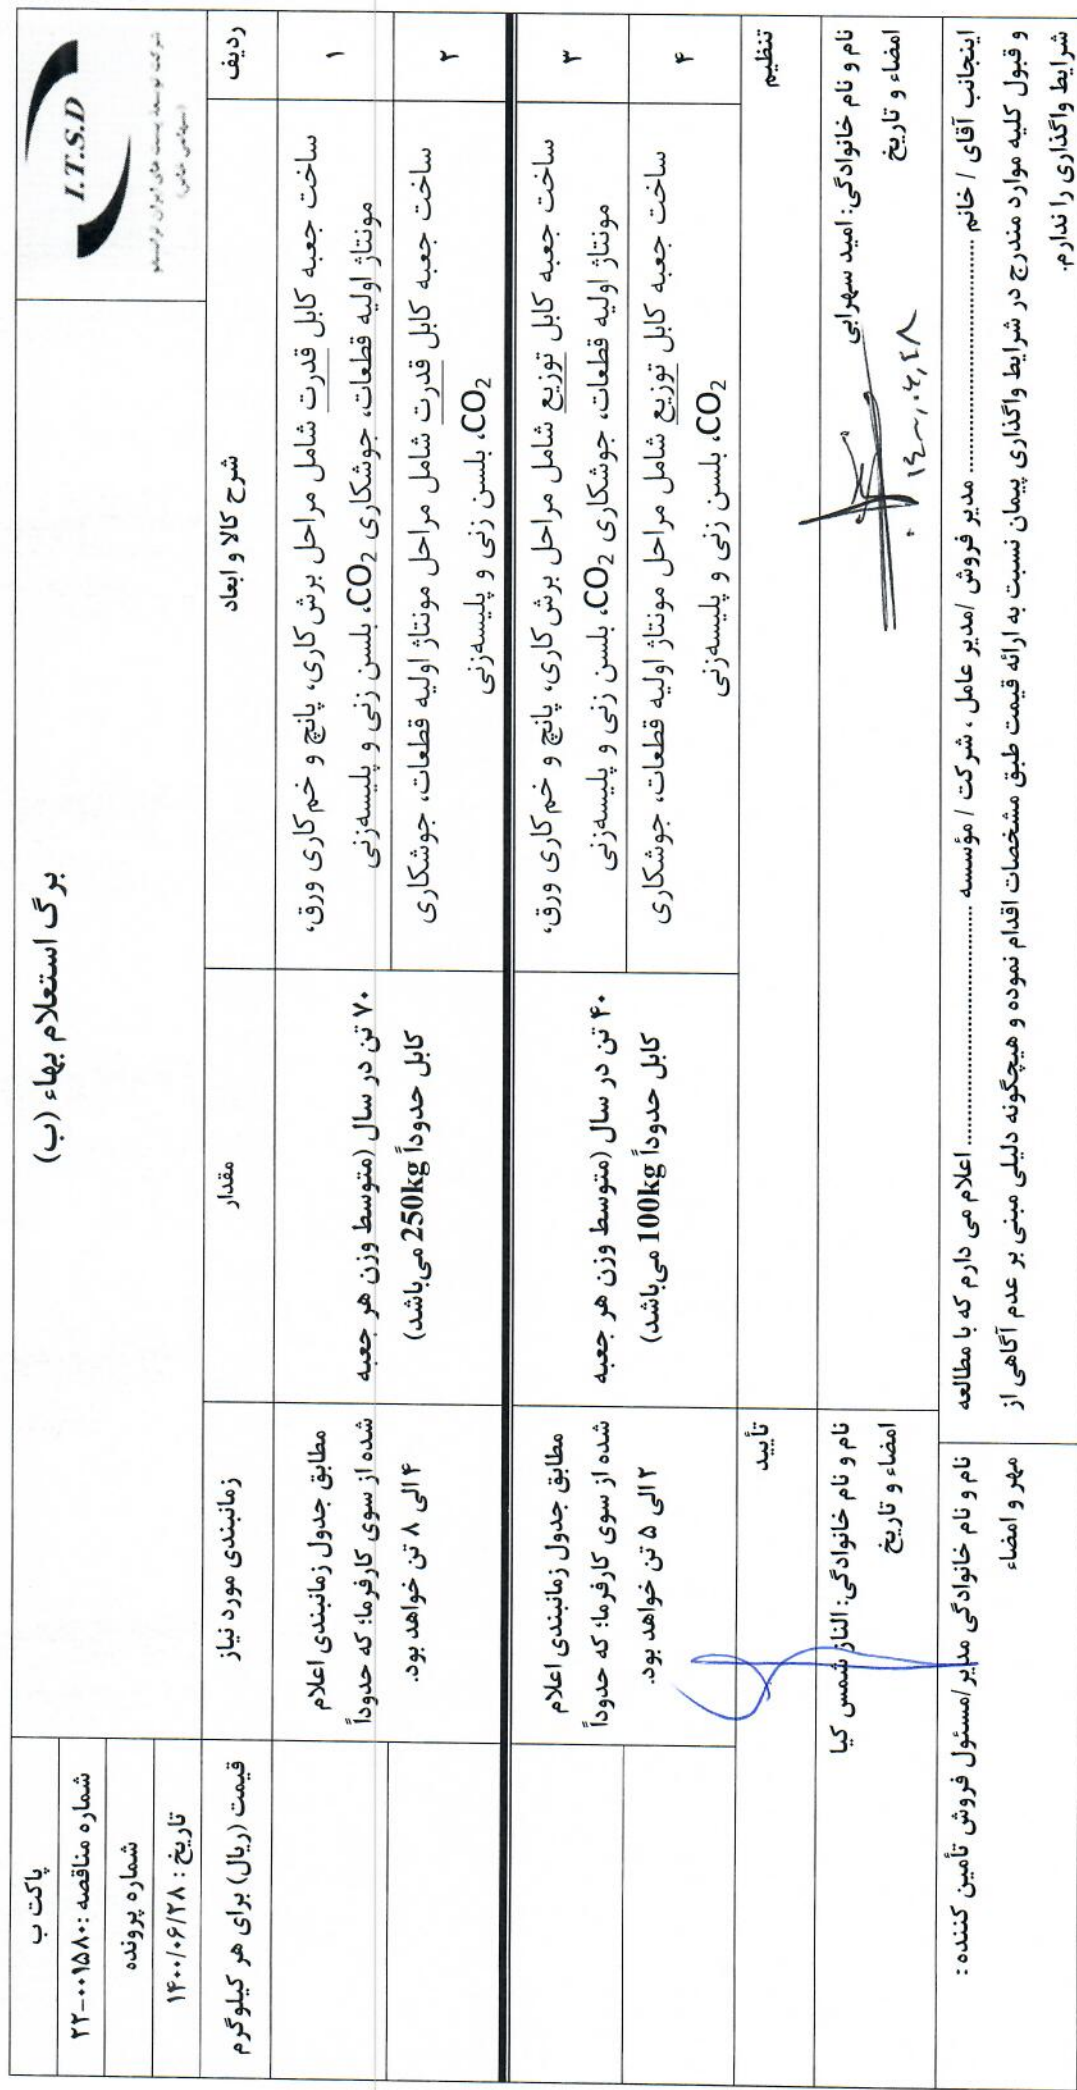 I.T.S.D
شرکت توسعه پست های ایران ترانسفو
(سهامی خاص)
برگ استعلام بهاء (ب)
پاکت ب
شماره مناقصه: ۰۰۱۵۸۰-۲۲
شماره پرونده
تاریخ : ۱۴۰۰/۰۶/۲۸
ردیف
شرح کالا و ابعاد
مقدار
زمانبندی مورد نیاز
قیمت (ریال) برای هر کیلوگرم
۱
ساخت جعبه کابل قدرت شامل مراحل برش‌کاری، پانچ و خم‌کاری ورق،
مونتاژ اولیه قطعات، جوشکاری CO2، بلسن زنی و پلیسه‌زنی
۲
ساخت جعبه کابل قدرت شامل مراحل مونتاژ اولیه قطعات، جوشکاری
CO2، بلسن زنی و پلیسه‌زنی
۷۰ تن در سال (متوسط وزن هر جعبه
کابل حدوداً 250kg می‌باشد)
مطابق جدول زمانبندی اعلام
شده از سوی کارفرما؛ که حدوداً
۴ الی ۸ تن خواهد بود.
۳
ساخت جعبه کابل توزیع شامل مراحل برش‌کاری، پانچ و خم‌کاری ورق،
مونتاژ اولیه قطعات، جوشکاری CO2، بلسن زنی و پلیسه‌زنی
۴
ساخت جعبه کابل توزیع شامل مراحل مونتاژ اولیه قطعات، جوشکاری
CO2، بلسن زنی و پلیسه‌زنی
۴۰ تن در سال (متوسط وزن هر جعبه
کابل حدوداً 100kg می‌باشد)
مطابق جدول زمانبندی اعلام
شده از سوی کارفرما؛ که حدوداً
۲ الی ۵ تن خواهد بود.
تنظیم
تأیید
نام و نام خانوادگی: امید سهرابی
امضاء و تاریخ
۱۴۰۰,۰۶,۲۸
نام و نام خانوادگی: الناز شمس کیا
امضاء و تاریخ
اینجانب آقای / خانم .................... مدیر فروش /مدیر عامل ، شرکت / مؤسسه .................... اعلام می دارم که با مطالعه
و قبول کلیه موارد مندرج در شرایط واگذاری پیمان نسبت به ارائه قیمت طبق مشخصات اقدام نموده و هیچگونه دلیلی مبنی بر عدم آگاهی از
شرایط واگذاری را ندارم.
نام و نام خانوادگی مدیر/مسئول فروش تأمین کننده :
مهر و امضاء